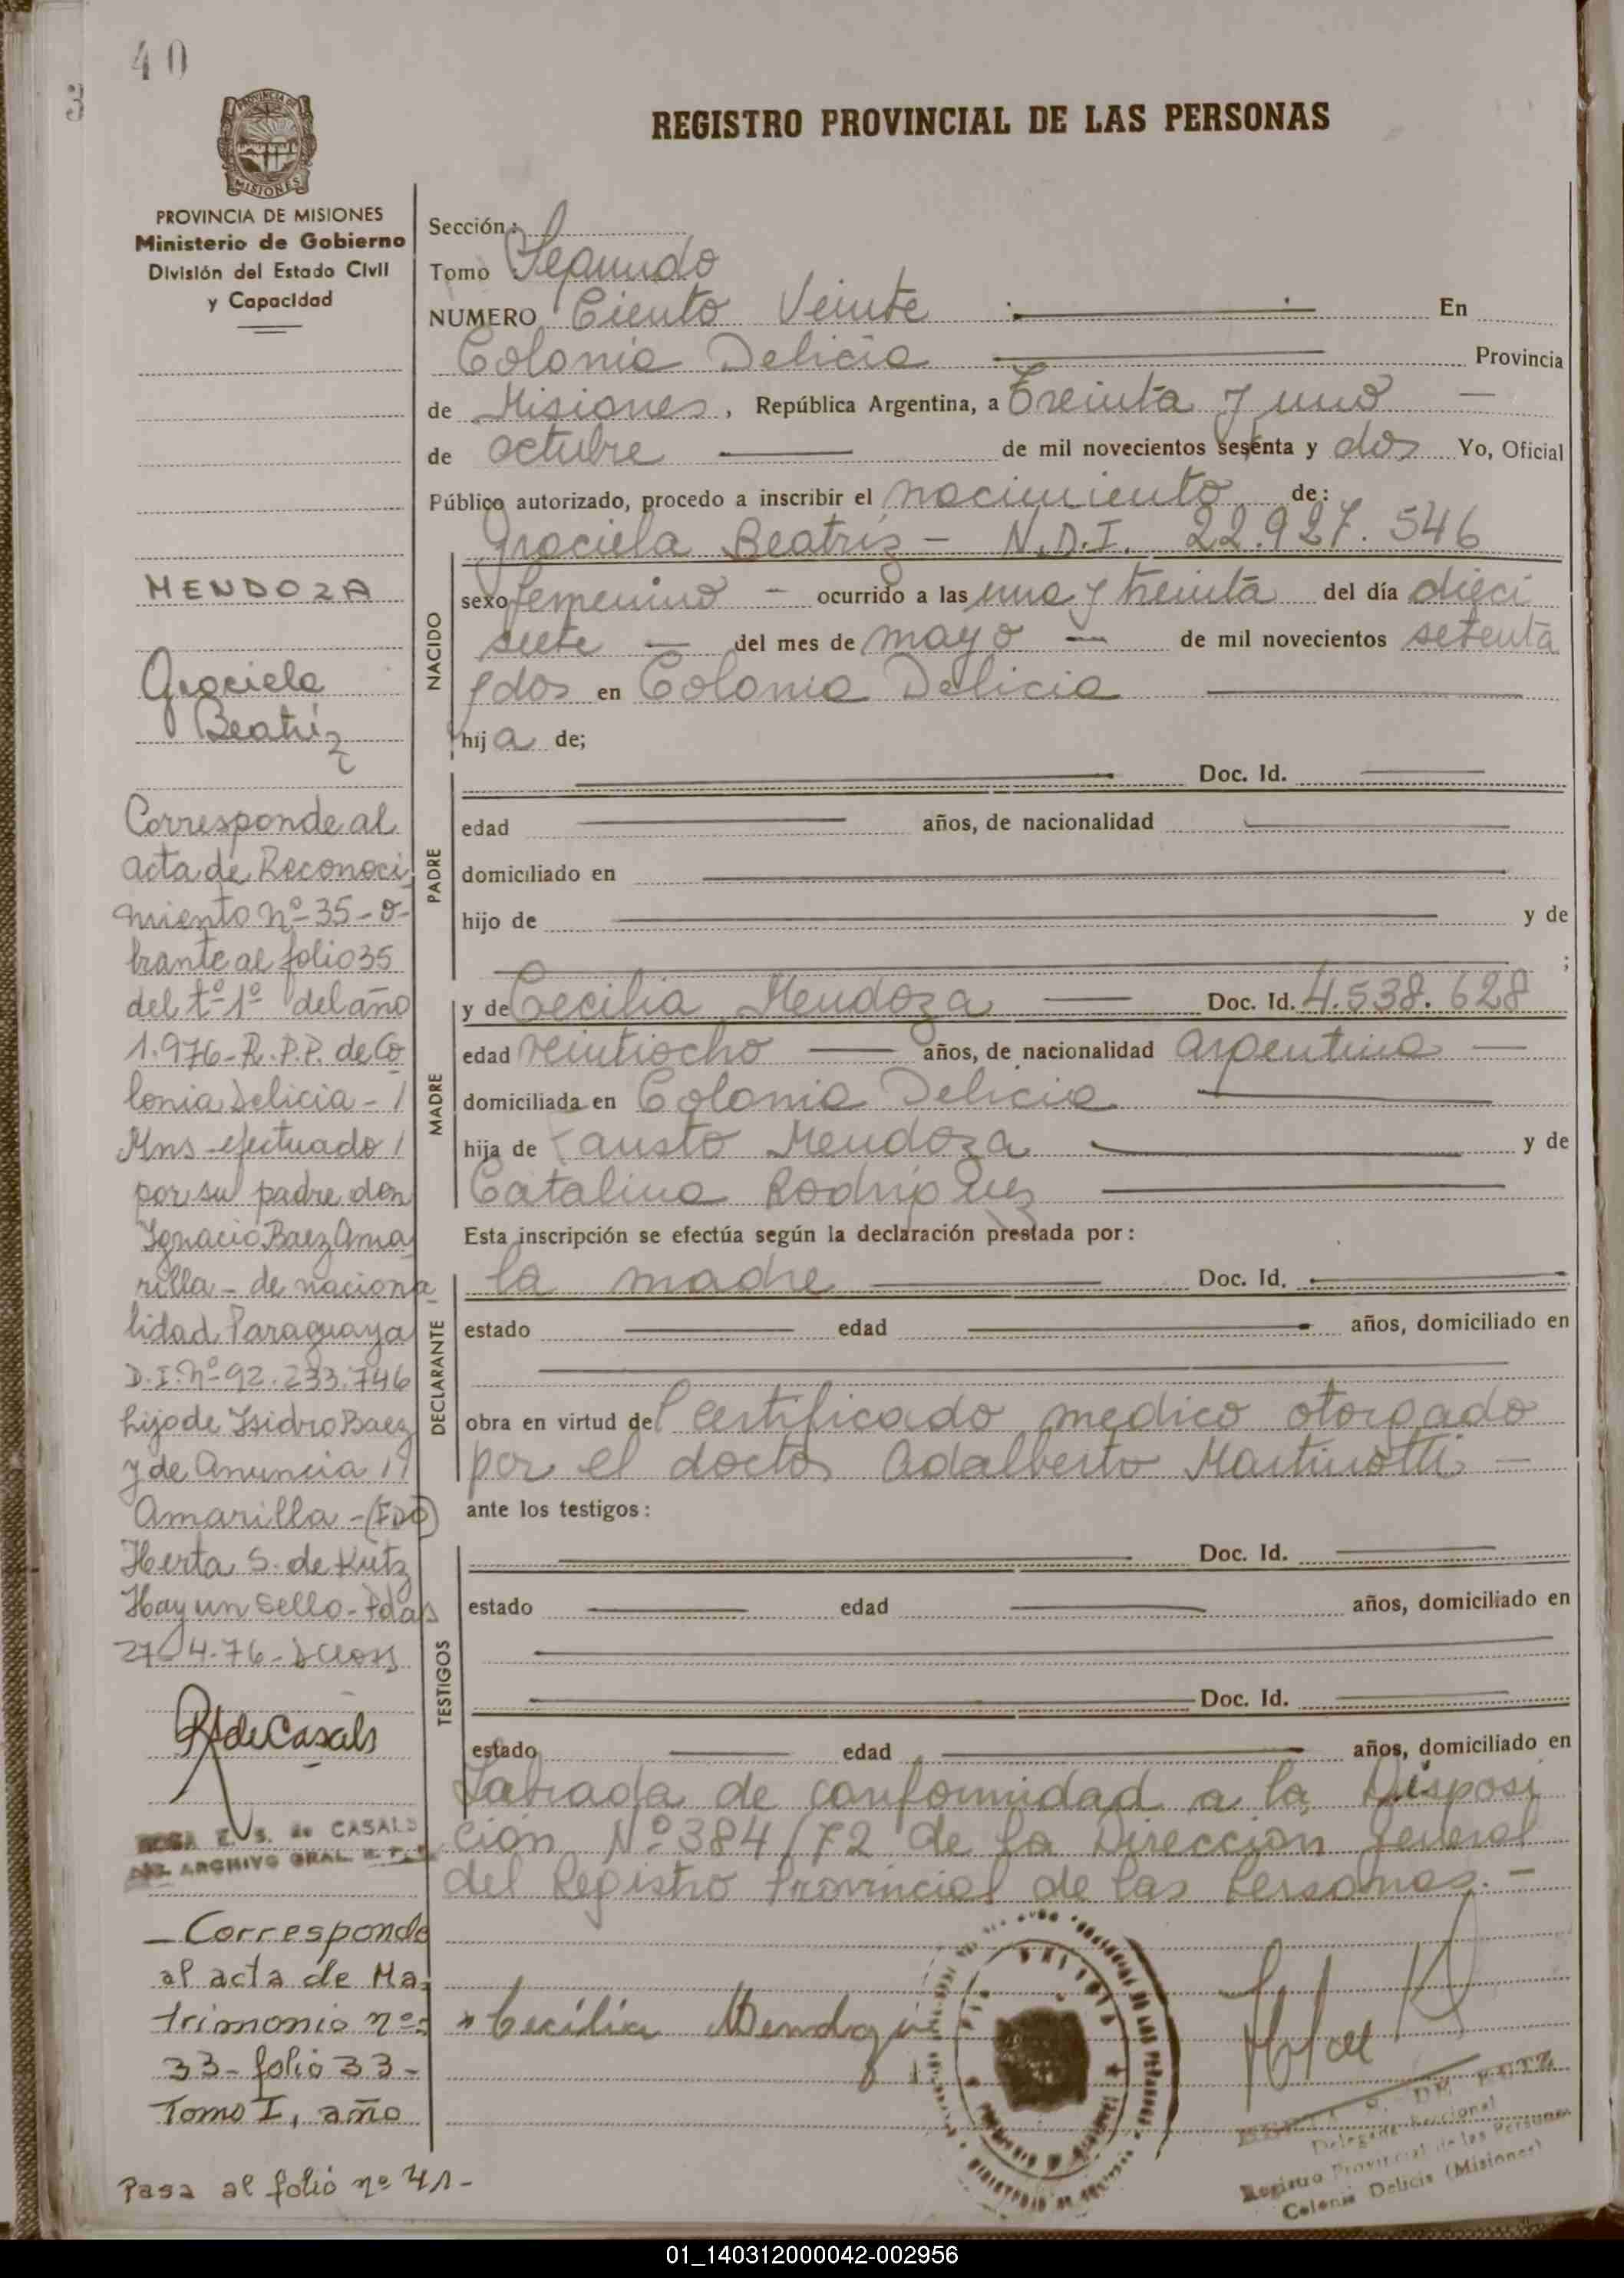 40
3
REGISTRO PROVINCIAL DE LAS PERSONAS
MISIONES
PROVINCIA DE MISIONES
Ministerio de Gobierno
División del Estado Civil
y Capacidad
MENDOZA
Graciela
Beatriz
Corresponde al
acta de Reconoci
miento nº 35 - o-
brante al folio 35
del tº 1º del año
1.976 - R.P.P. de Co
lonia Delicia - /
Mns - efectuado /
por su padre don
Ignacio Baez Ama
rilla - de naciona
lidad Paraguaya
D.I. nº 92.233.746
hijo de Isidro Baez
y de Anuncia //
Amarilla - (FDO)
Herta S. de Kutz
Hay un Sello - Pdas
27-4-76 -
RdeCasals
ROSA E. S. de CASALS
ARCHIVO GRAL R.P.P.
- Corresponde
al acta de Ma-
trimonio nº:
33 - folio 33 -
Tomo I, año
Pasa al folio nº 41 -
Sección:
Tomo : Segundo
NUMERO Ciento Veinte En
Colonia Delicia Provincia
de Misiones, República Argentina, a Treinta y uno -
de octubre de mil novecientos sesenta y dos Yo, Oficial
Público autorizado, procedo a inscribir el nacimiento de:
Graciela Beatriz - N.D.I. 22.927.546
NACIDO
sexo femenino - ocurrido a las una y treinta del día dieci
siete - del mes de mayo - de mil novecientos setenta
y dos en Colonia Delicia
hija de;
PADRE
Doc. Id.
edad años, de nacionalidad
domiciliado en
hijo de y de
;
MADRE
y de Cecilia Mendoza Doc. Id. 4.538.628
edad veintiocho años, de nacionalidad argentina -
domiciliada en Colonia Delicia
hija de Fausto Mendoza y de
Catalina Rodriguez
Esta inscripción se efectúa según la declaración prestada por:
DECLARANTE
la madre Doc. Id.
estado edad años, domiciliado en
obra en virtud del certificado medico otorgado
por el doctor Adalberto Martinotti -
ante los testigos:
TESTIGOS
Doc. Id.
estado edad años, domiciliado en
Doc. Id.
estado edad años, domiciliado en
Labrada de conformidad a la Disposi
ción Nº 384/72 de la Dirección General
del Registro Provincial de las Personas. -
Cecilia Mendoza
DE KUTZ
Delegada Seccional
Registro Provincial de las Personas
Colonia Delicia (Misiones)
01_140312000042-002956